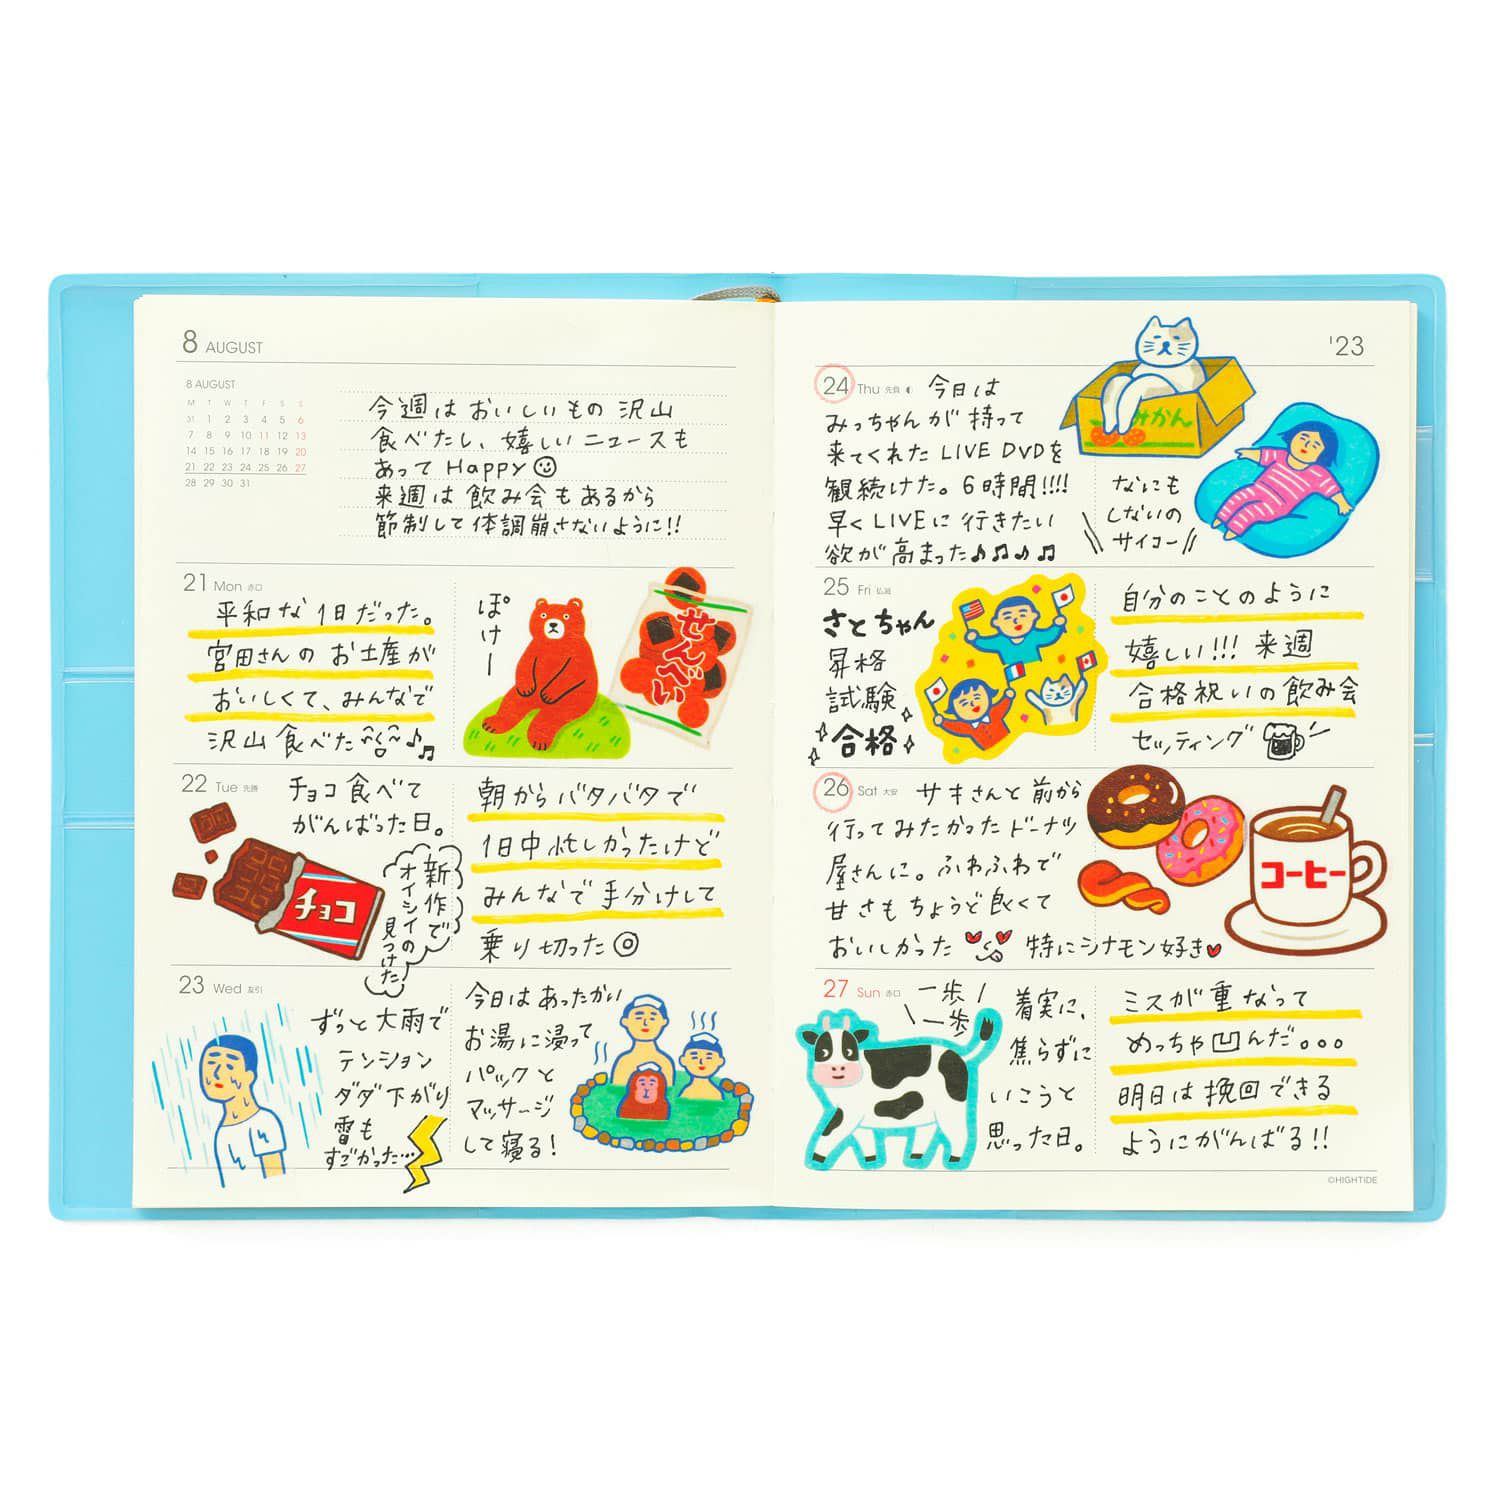 8 AUGUST
8 AUGUST
M T W T F S S
31 1 2 3 4 5 6
7 8 9 10 11 12 13
14 15 16 17 18 19 20
21 22 23 24 25 26 27
28 29 30 31
今週はおいしいもの沢山
食べたし、嬉しいニュースも
あってHappy
来週は飲み会もあるから
節制して体調崩さないように!!
21 Mon 赤口
平和な1日だった。
宮田さんのお土産が
おいしくて、みんなで
沢山食べた♪♫
ぽけー
せんべい
22 Tue 先勝
チョコ食べて
がんばった日。
新作で
オイシイの
見つけた!
チョコ
朝からバタバタで
1日中忙しかったけど
みんなで手分けして
乗り切った◎
23 Wed 友引
ずっと大雨で
テンション
ダダ下がり
雷も
すごかった…
今日はあったかい
お湯に浸って
パックと
マッサージ
して寝る!
'23
24 Thu 先負
今日は
みっちゃんが持って
来てくれたLIVE DVDを
観続けた。6時間!!!!
早くLIVEに行きたい
欲が高まった♪♫♪♫
みかん
なにも
しないの
サイコー
25 Fri 仏滅
さとちゃん
昇格
試験
合格
自分のことのように
嬉しい!!!来週
合格祝いの飲み会
セッティング
26 Sat 大安
サキさんと前から
行ってみたかったドーナツ
屋さんに。ふわふわで
甘さもちょうど良くて
おいしかった
特にシナモン好き♥
コーヒー
27 Sun 赤口
一歩
一歩
着実に、
焦らずに
いこうと
思った日。
ミスが重なって
めっちゃ凹んだ。。。
明日は挽回できる
ようにがんばる!!
©HIGHTIDE